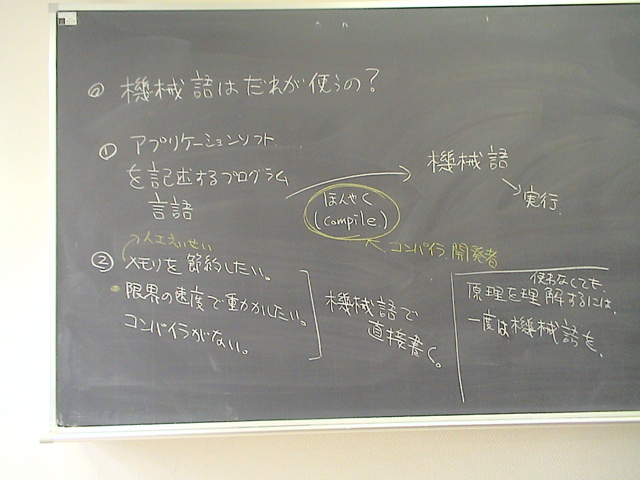 ◎ 機械語はだれが使うの?
① アプリケーションソフト
を記述するプログラム
言語
ほんやく
(compile)
機械語
実行.
コンパイラ.開発者
人工えいせい
② メモリを節約したい。
・限界の速度で動かしたい。
コンパイラがない。
機械語で
直接書く。
使わなくても.
原理を理解するには.
一度は機械語を.